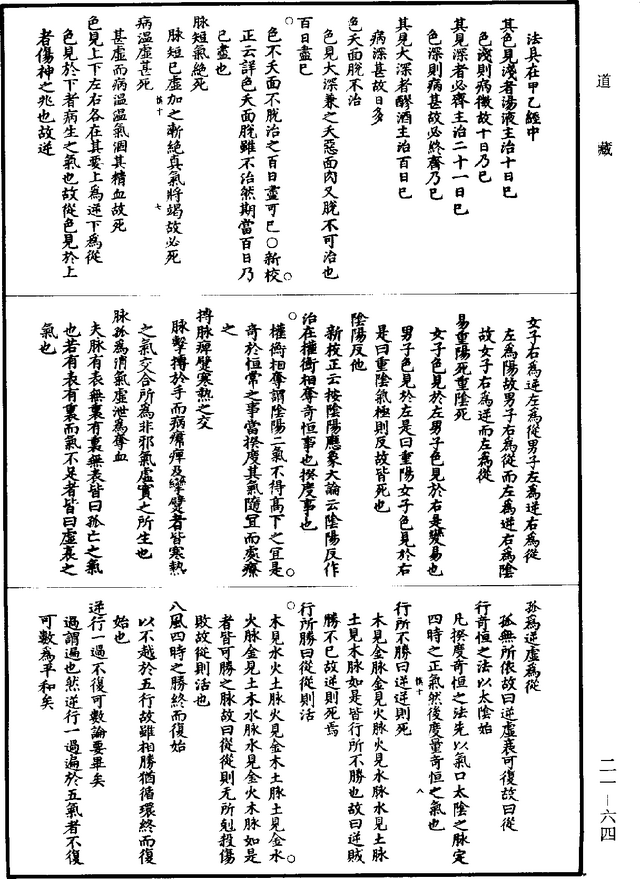 道藏
法具在甲乙經中
其色見淺者湯液主治十日已
色淺則病微故十日乃已
其見深者必齊主治二十一日已
色深則病甚故必終齊乃已
其見大深者醪酒主治百日已
病深甚故日多
色夭面脫不治
色見大深兼之夭惡面肉又脫不可治也
百日盡已
色不夭面不脫治之百日盡可已○新校
正云詳色夭面脫雖不治然期當百日乃
已盡也
脉短氣絕死
脉短已虛加之漸絕真氣將竭故必死
慎十
七
病溫虛甚死
甚虛而病溫溫氣涸其精血故死
色見上下左右各在其要上為逆下為從
色見於下者病生之氣也故從色見於上
者傷神之兆也故逆
女子右為逆左為從男子左為逆右為從
左為陽故男子右為從而左為逆右為陰
故女子右為逆而左為從
易重陽死重陰死
女子色見於左男子色見於右是變易也
男子色見於左是曰重陽女子色見於右
是曰重陰氣極則反故皆死也
陰陽反他
新校正云按陰陽應象大論云陰陽反作
治在權衡相奪奇恒事也揆度事也
權衡相奪謂陰陽二氣不得高下之宜是
奇於恒常之事當揆度其氣隨宜而處療
之
搏脉痹躄寒熱之交
脉擊搏於手而病㿏痹及攣躄者皆寒熱
之氣交合所為非邪氣虛實之所生也
脉孤為消氣虛泄為奪血
夫脉有表無裏有裏無表皆曰孤亡之氣
也若有表有裏而氣不足者皆曰虛衰之
氣也
孤為逆虛為從
孤無所依故曰逆虛衰可復故曰從
行奇恒之法以太陰始
凡揆度奇恒之法先以氣口太陰之脉定
四時之正氣然後度量奇恒之氣也
行所不勝曰逆逆則死
慎十
八
木見金脉金見火脉火見水脉水見土脉
土見木脉如是皆行所不勝也故曰逆賊
勝不已故逆則死焉
行所勝曰從從則活
木見水火土脉火見金木土脉土見金水
火脉金見土木水脉水見金火木脉如是
者皆可勝之脉故曰從從則无所剋殺傷
敗故從則活也
八風四時之勝終而復始
以不越於五行故雖相勝猶循環終而復
始也
逆行一過不復可數論要畢矣
過謂遍也然逆行一過遍於五氣者不復
可數為平和矣
二一—六四